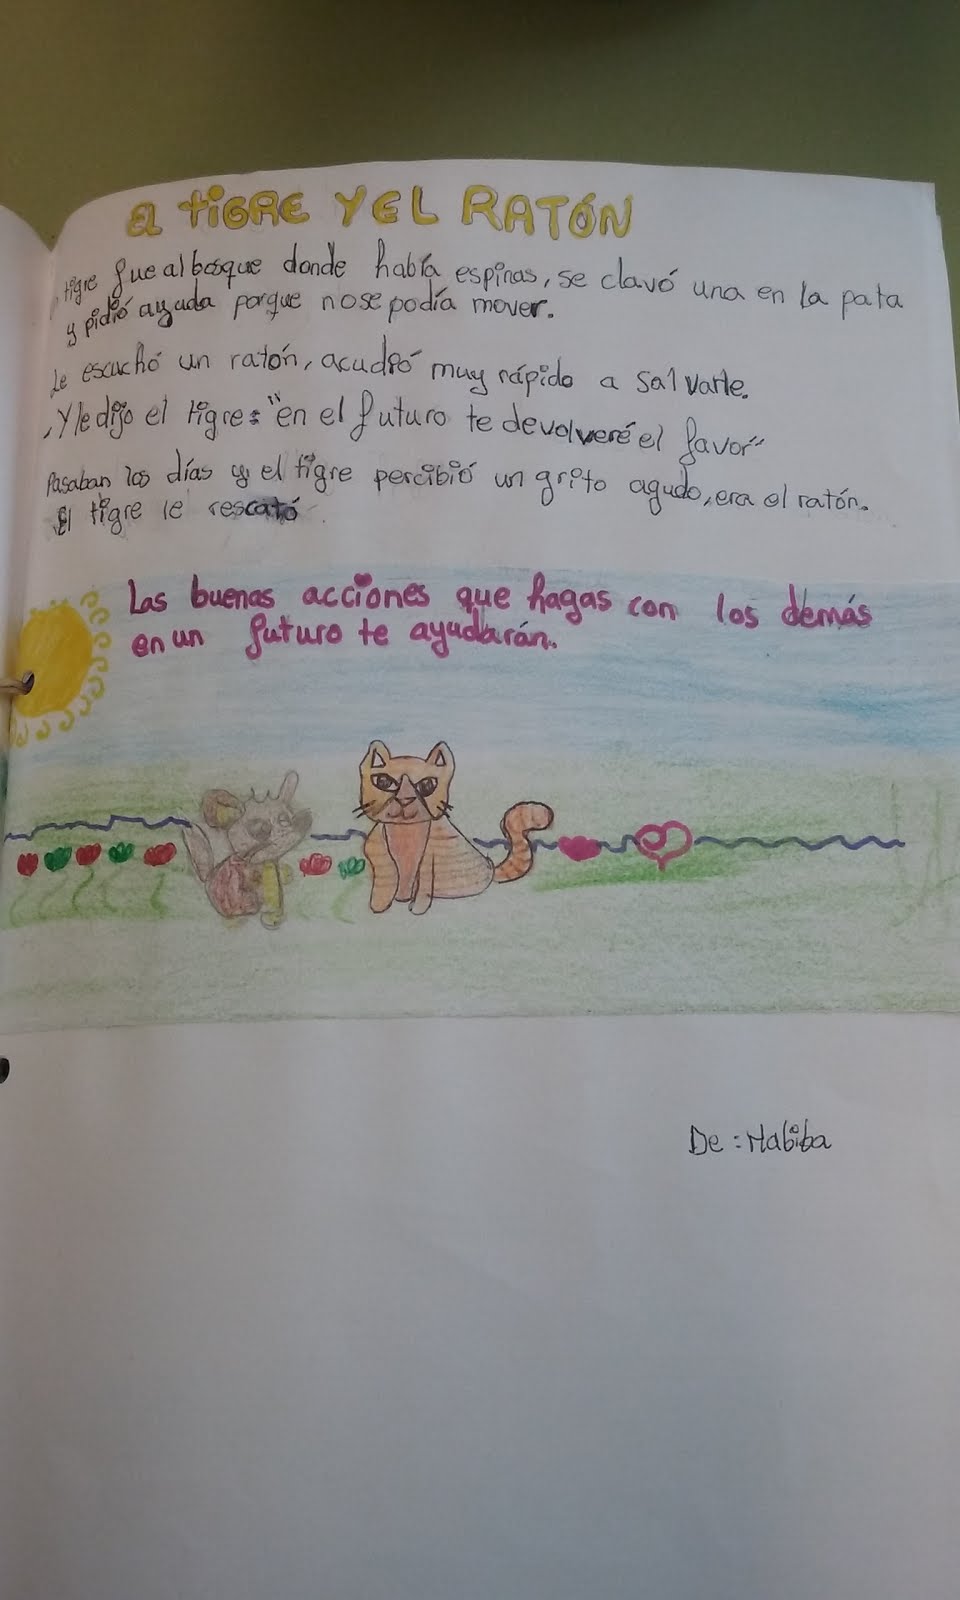 El tiGRE Y EL RATÓN
tigre fue al bosque donde había espinas, se clavó una en la pata
y pidió ayuda porque no se podía mover.
Le escuchó un ratón, acudió muy rápido a salvarle.
Y le dijo el tigre: "en el futuro te devolveré el favor"
Pasaban los días y el tigre percibió un grito agudo, era el ratón.
El tigre le rescató
Las buenas acciones que hagas con los demás
en un futuro te ayudarán.
De: Habiba